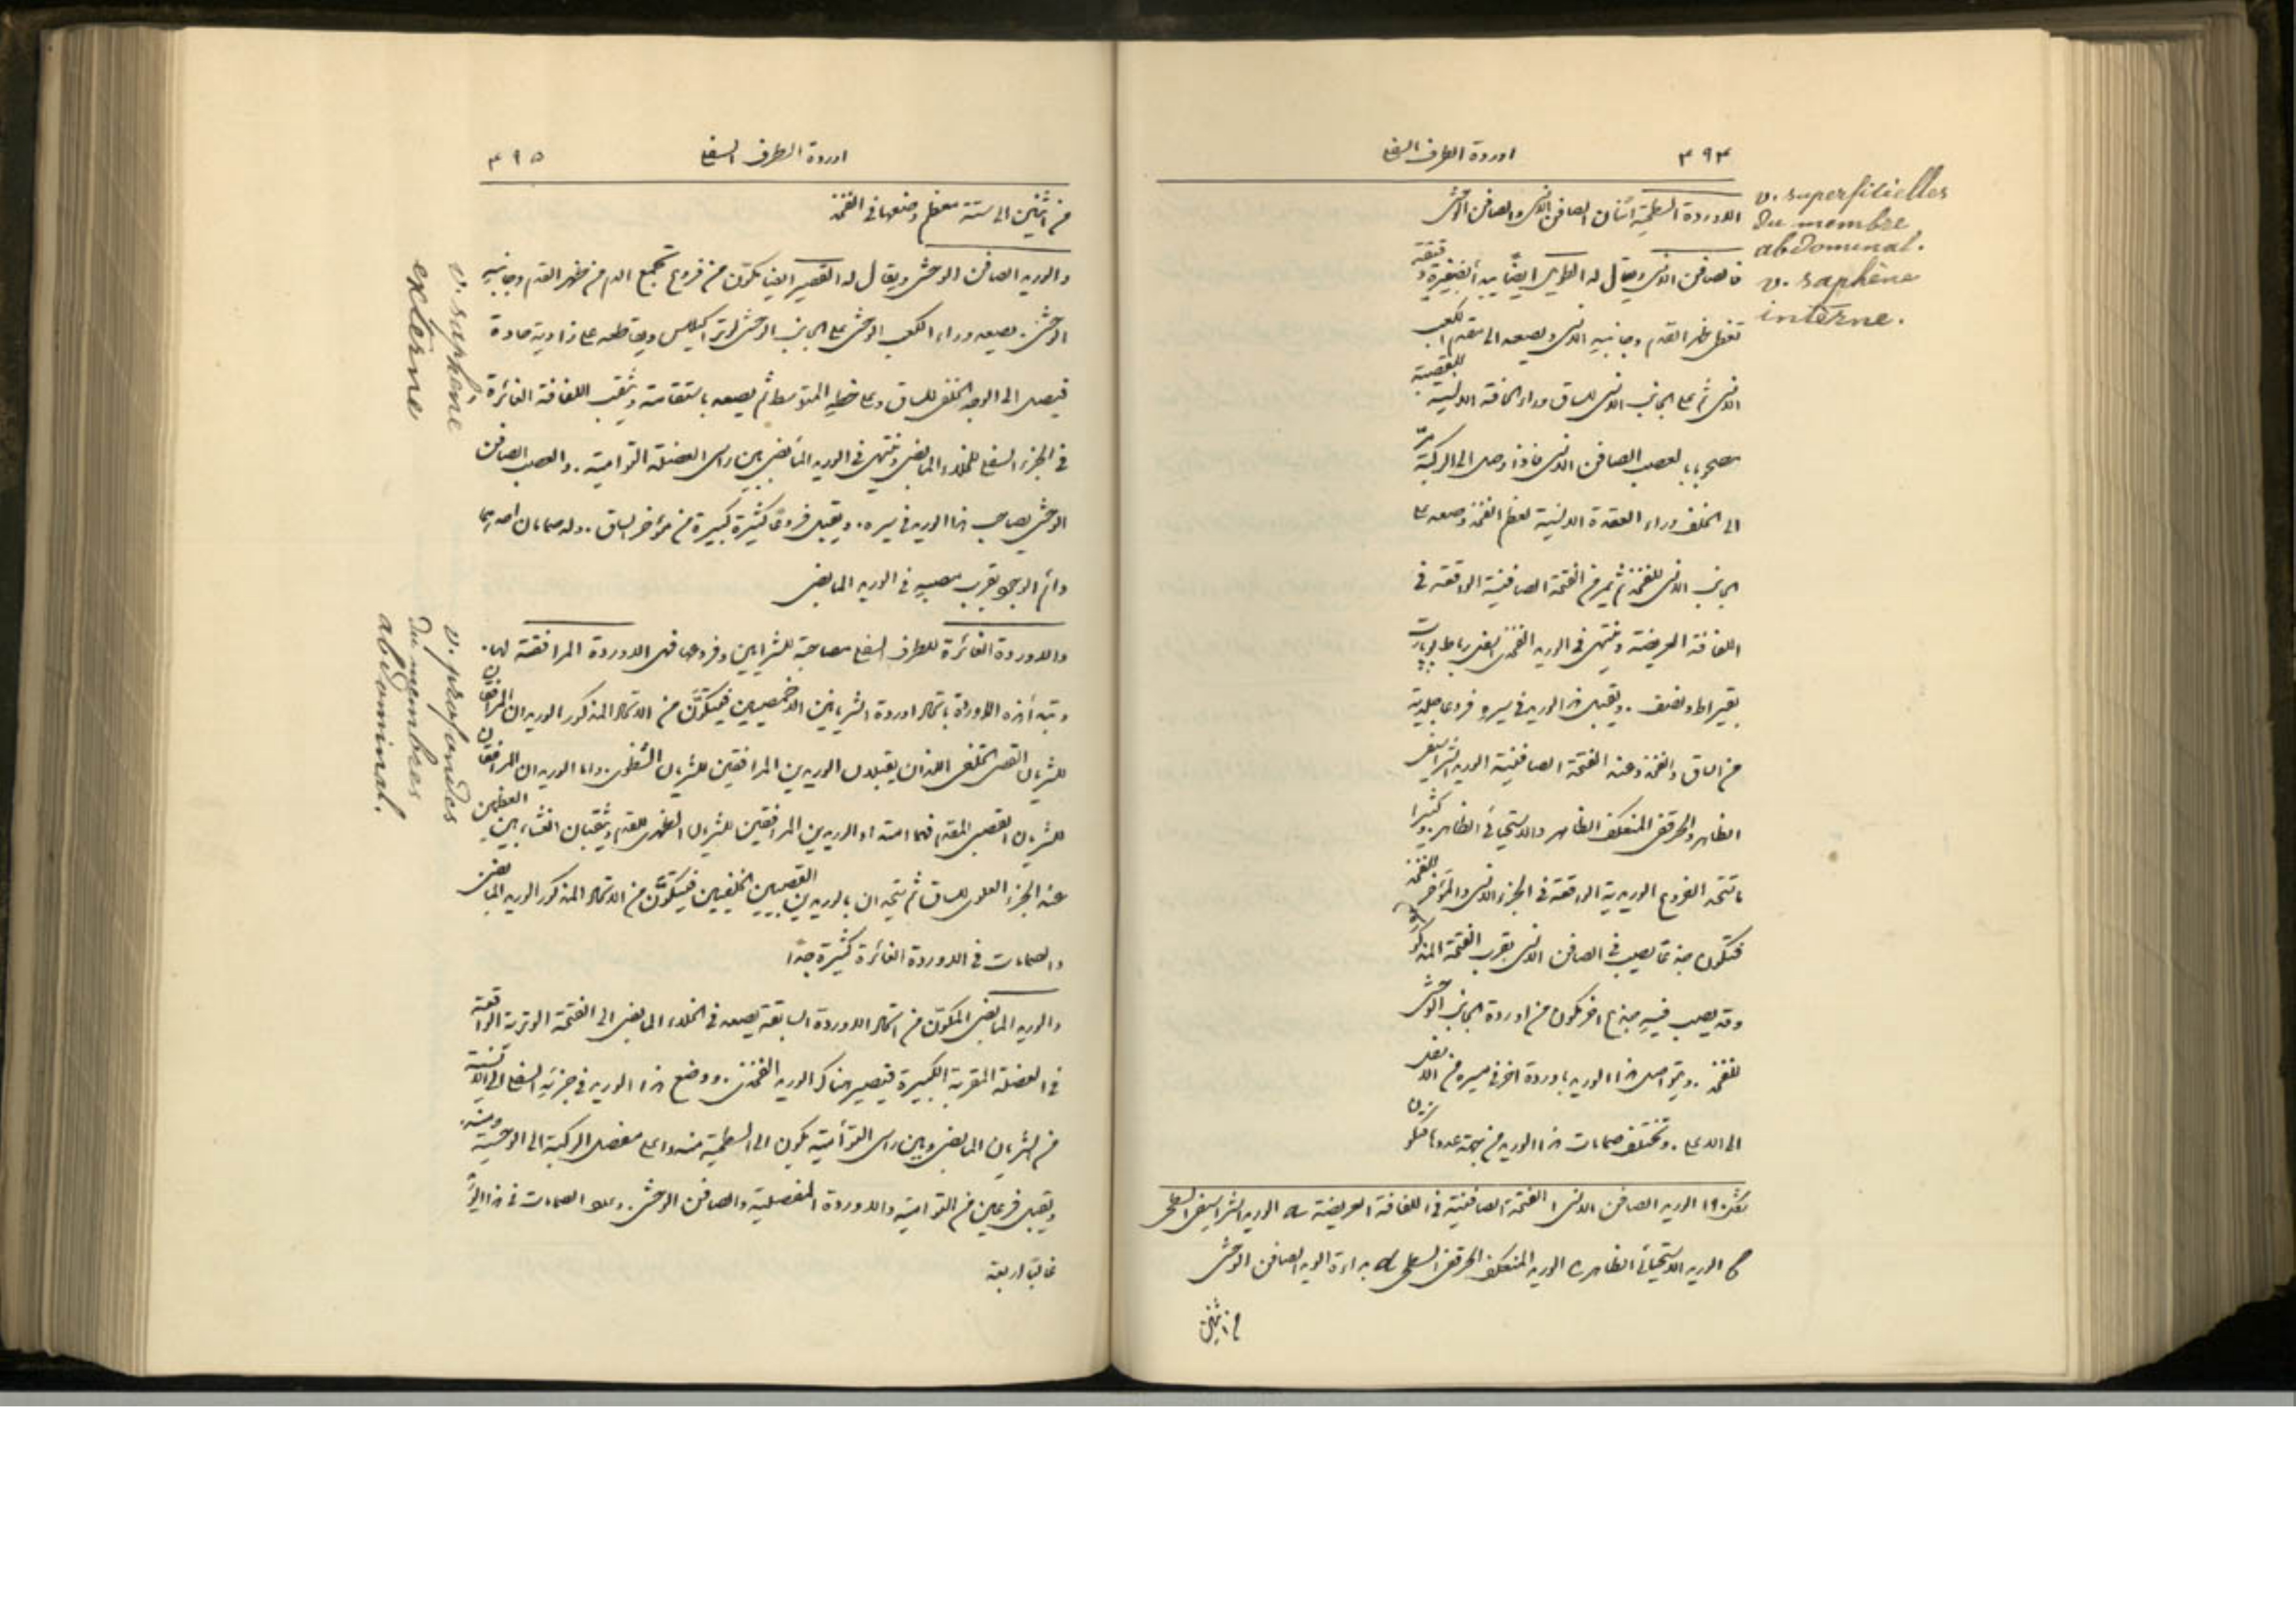 ٣٩٤ اوردة الطرف السفلي
v. superficielles
du membre
abdominal.
v. saphène
interne.
الاوردة السطحية اثنان الصافن الانسي والصافن الوحشي
فالصافن الانسي ويقال له الطويل ايضًا يبدأ بضفيرة دقيقة
تغطي ظهر القدم وجانبيه الانسي ويصعد الى مقدم الكعب
الانسي ثم على الجانب الانسي للساق وراء الحافة الانسية للقصبة
مصحوبا بالعصب الصافن الانسي فاذا وصل الى الركبة مرّ
الى الخلف وراء العقدة الانسية لعظم الفخذ وصعد على
الجانب الانسي للفخذ ثم يمر في الفتحة الصافنية الواقعة في
اللفافة العريضة وينتهي في الوريد الفخذي اسفل رباط بوبارت
بقيراط ونصف . ويقبل هذا الوريد في سيره فروعا جلدية
من الساق والفخذ وعند الفتحة الصافنية الوريد الشراسيفي
الظاهر والحرقفي المنعكف الظاهر والاستحيائي الظاهر . وكثيرا
ما تتحد الفروع الوريدية الواقعة في الجزء الانسي والمؤخر للفخذ
فتكون جذعًا يصب في الصافن الانسي بقرب الفتحة المذكورة
وقد يصب فيه جذع اخر يكون من اوردة الجانب الوحشي
للفخذ . ويتواصل هذا الوريد باوردة اخر في مسيره من الاسفل
الى الاعلى . وتختلف صمامات هذا الوريد من جهة عددها فتكون
شكل ١٩٠ الوريد الصافن الانسي ا الفتحة الصافنية في اللفافة العريضة الوريد الشراسيفي السطحي
الوريد الاستحيائي الظاهر الوريد المنعكف الحرقفي السطحي بداءة الوريد الصافن الوحشي
من اثنين
اوردة الطرف السفلي ٣٩٥
من اثنين الى ستة معظم وضعها في الفخذ
v. saphène
externe
والوريد الصافن الوحشي ويقال له القصير ايضا يتكون من فروع تجمع الدم من ظهر القدم وجانبيه
الوحشي . يصعد وراء الكعب الوحشي على الجانب الوحشي لوتر اكيلس ويقاطعه على زاوية حادة
فيصل الى الوجه الخلفي للساق وعلى خطه المتوسط ثم يصعد باستقامة ويثقب اللفافة الغائرة
في الجزء السفلي للخلاء المابضي وينتهي في الوريد المابضي بين راسي العضلة التوامية . والعصب الصافن
الوحشي يصاحب هذا الوريد في سيره . ويقبل فروعًا كثيرة كبيرة من مؤخر الساق . وله صمامان احدهما
دائم الوجود بقرب مصبه في الوريد المابضي
v. profondes
du membres
abdominal.
والاوردة الغائرة للطرف السفلي مصاحبة للشرايين وفروعها فهي الاوردة المرافقة لها .
وتبدأ هذه الاوردة باتحاد اوردة الشريانين الاخمصيين فيتكوَّن من الاتحاد المذكور الوريدان المرافقان
للشريان القصبي الخلفي اللذان يقبلان الوريدين المرافقين للشريان الشظوي . واما الوريدان المرافقان
للشريان القصبي المقدم فهما امتداد الوريدين المرافقين للشريان الظهري للقدم ويثقبان الغشاء بين العظمين
عند الجزء العلوي للساق ثم يتحدان بالوريدين القصبيين الخلفيين فيتكوَّن من الاتحاد المذكور الوريد المابضي
والصمامات في الاوردة الغائرة كثيرة جدًا
والوريد المابضي المتكوّن من اتحاد الاوردة السابقة يصعد في الخلاء المابضي الى الفتحة الوترية الواقعة
في العضلة المقربة الكبيرة فيصير هناك الوريد الفخذي . ووضع هذا الوريد في جزئه السفلي الى الانسية
من الشريان المابضي وبين راسي التوأمية يكون الى السطحية منه واعلى مفصل الركبة الى الوحشية منه
ويقبل فرعين من التوامية والاوردة المفصلية والصافن الوحشي . وعدد الصمامات في هذا الوريد
غالبًا اربعة